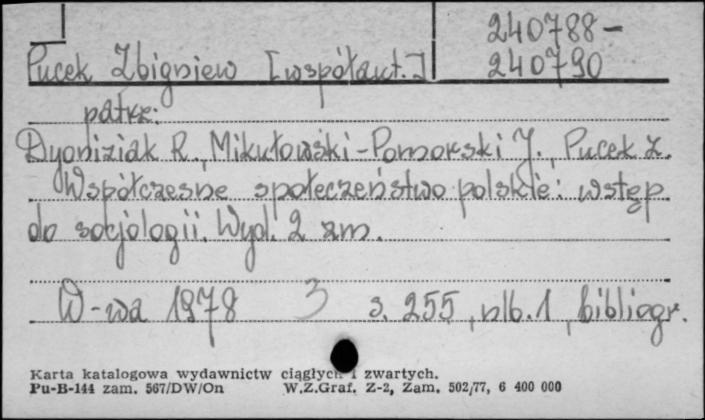 240788-
Pucek Zbigniew [współaut.] 240790
patrz:
Dyoniziak R., Mikułowski-Pomorski J., Pucek Z.
Współczesne społeczeństwo polskie: wstęp
do socjologii. Wyd. 2 zm.
W-wa 1978 3 s. 255, nlb. 1, bibliogr.
Karta katalogowa wydawnictw ciągłych i zwartych.
Pu-B-144 zam. 567/DW/On W.Z.Graf. Z-2, Zam. 502/77, 6 400 000